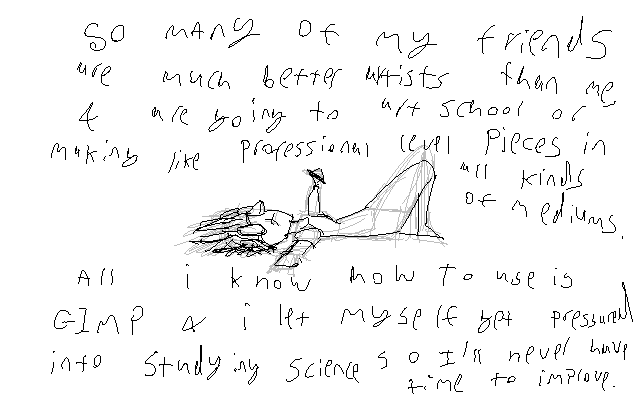 so many of my friends
are much better artists than me
& are going to art school or
making like professional level pieces in
all kinds
of mediums.
All i know how to use is
GIMP & i let myself get pressured
into studying science so I'll never have
time to improve.